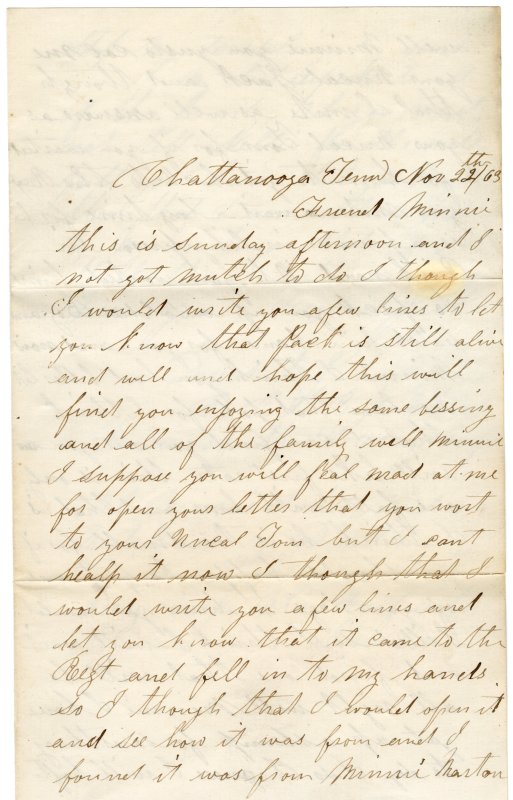 Chattanooga Tenn Nov 22th/63
Friend Minnie
this is sunday afternoon and I
not got mutch to do I though
I would write you afew lines to let
you know that Pack is still alive
and well and hope this will
find you enjoying the same bessing
and all of the family well Minnie
I suppose you will feal mad at me
for open your letter that you wort
to your Uncal Tom but I cant
healp it now I though that I
would write you afew lines and
let you know that it came to the
Regt and fell in to my hands
so I though that I would open it
and see how it was from and I
found it was from Minnie Marton